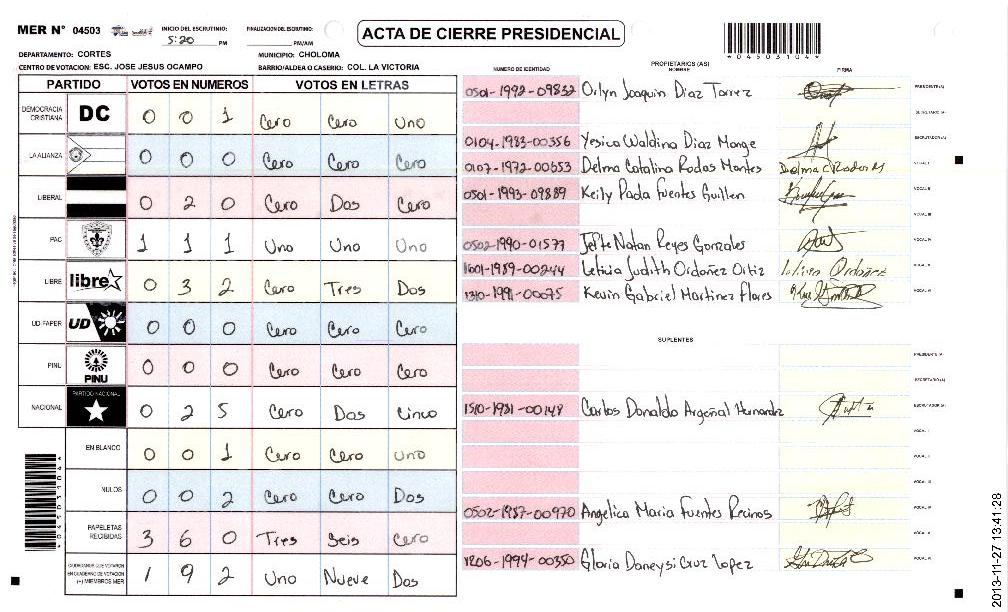 MER Nº 04503
INICIO DEL ESCRUTINIO:
5:20 PM
FINALIZACION DEL ESCRUTINIO:
PM/AM
ACTA DE CIERRE PRESIDENCIAL
*04503104*
DEPARTAMENTO: CORTES
MUNICIPIO: CHOLOMA
CENTRO DE VOTACION: ESC. JOSE JESUS OCAMPO
BARRIO/ALDEA O CASERIO: COL. LA VICTORIA
PARTIDO VOTOS EN NUMEROS VOTOS EN LETRAS
DEMOCRACIA CRISTIANA DC 0 0 1 Cero Cero Uno
LA ALIANZA 0 0 0 Cero Cero Cero
LIBERAL 0 2 0 Cero Dos Cero
PAC 1 1 1 Uno Uno Uno
LIBRE libre 0 3 2 Cero Tres Dos
UD FAPER UD 0 0 0 Cero Cero Cero
PINU PINU 0 0 0 Cero Cero Cero
NACIONAL PARTIDO NACIONAL 0 2 5 Cero Dos Cinco
EN BLANCO 0 0 1 Cero Cero uno
NULOS 0 0 2 Cero Cero Dos
PAPELETAS RECIBIDAS 3 6 0 Tres Seis Cero
CIUDADANOS QUE VOTARON EN CUADERNO DE VOTACION (+) MIEMBROS MER 1 9 2 Uno Nueve Dos
PROPIETARIOS (AS)
NUMERO DE IDENTIDAD NOMBRE FIRMA
0501-1992-09852 Orlyn Joaquin Diaz Torrez PRESIDENTE(A)
SECRETARIO (A)
0104-1983-00356 Yesica Waldina Diaz Monge ESCRUTADOR(A)
0107-1972-00553 Delma Catalina Rodas Montes Delma C Rodas M VOCAL I
0501-1993-09889 Keily Paola Fuentes Guillen VOCAL II
VOCAL III
0502-1990-01577 Jefte Natan Reyes Gonzales VOCAL IV
1601-1989-00244 Leticia Judith Ordoñez Ortiz Leticia Ordoñez VOCAL V
1310-1991-00075 Kevin Gabriel Martinez Flores VOCAL VI
SUPLENTES
PRESIDENTE (A)
SECRETARIO(A)
1510-1981-00148 Carlos Donaldo Argeñal Hernandz ESCRUTADOR (A)
VOCAL I
VOCAL II
VOCAL III
0502-1987-00970 Angelica Maria Fuentes Recinos VOCAL IV
VOCAL V
1206-1994-00350 Gloria Daneysi Cruz Lopez VOCAL VI
2013-11-27 13:41:28